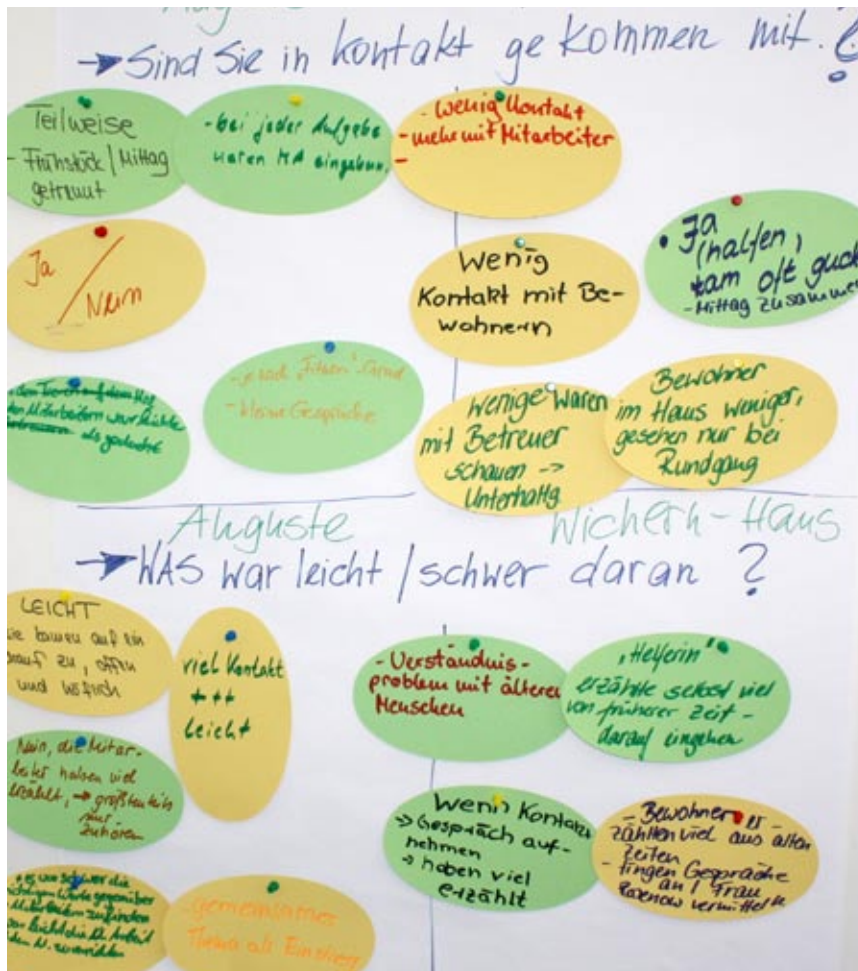 → Sind Sie in Kontakt gekommen mit
Teilweise
- Frühstück / Mittag
getreut
- bei jeder Aufgabe
waren MA
- wenig Kontakt
- mehr mit Mitarbeiter
-
Ja
/
Nein
Wenig
Kontakt mit Be-
wohnern
• Ja
(halfen,
kam oft
- Mittag
- kleine Gespräche
als gedacht
wenige waren
mit Betreuer
schauen ->
Unterhaltg
Bewohner
im Haus weniger,
gesehen nur bei
Rundgang
Auguste
Wichern-Haus
→ WAS war leicht / schwer daran ?
LEICHT
kamen auf ein
zu, offen
und höflich
viel Kontakt
+++
leicht
- Verständnis-
problem mit älteren
Menschen
"Helferin"
erzählte selbst viel
von früherer Zeit -
darauf eingehen
Nein, die Mitar-
beiter haben viel
erzählt, → größtenteils
nur
zuhören
Wenn Kontakt
→ Gespräch auf-
nehmen
→ haben viel
erzählt
- Bewohner er-
zählten viel aus alten
Zeiten
- fingen Gespräche
an / Frau
Rosenow
war schwer die
richtigen Worte gegenüber
Mitarbeitern zu finden
leicht die Arbeit
- gemeinsames
Thema als Einstieg